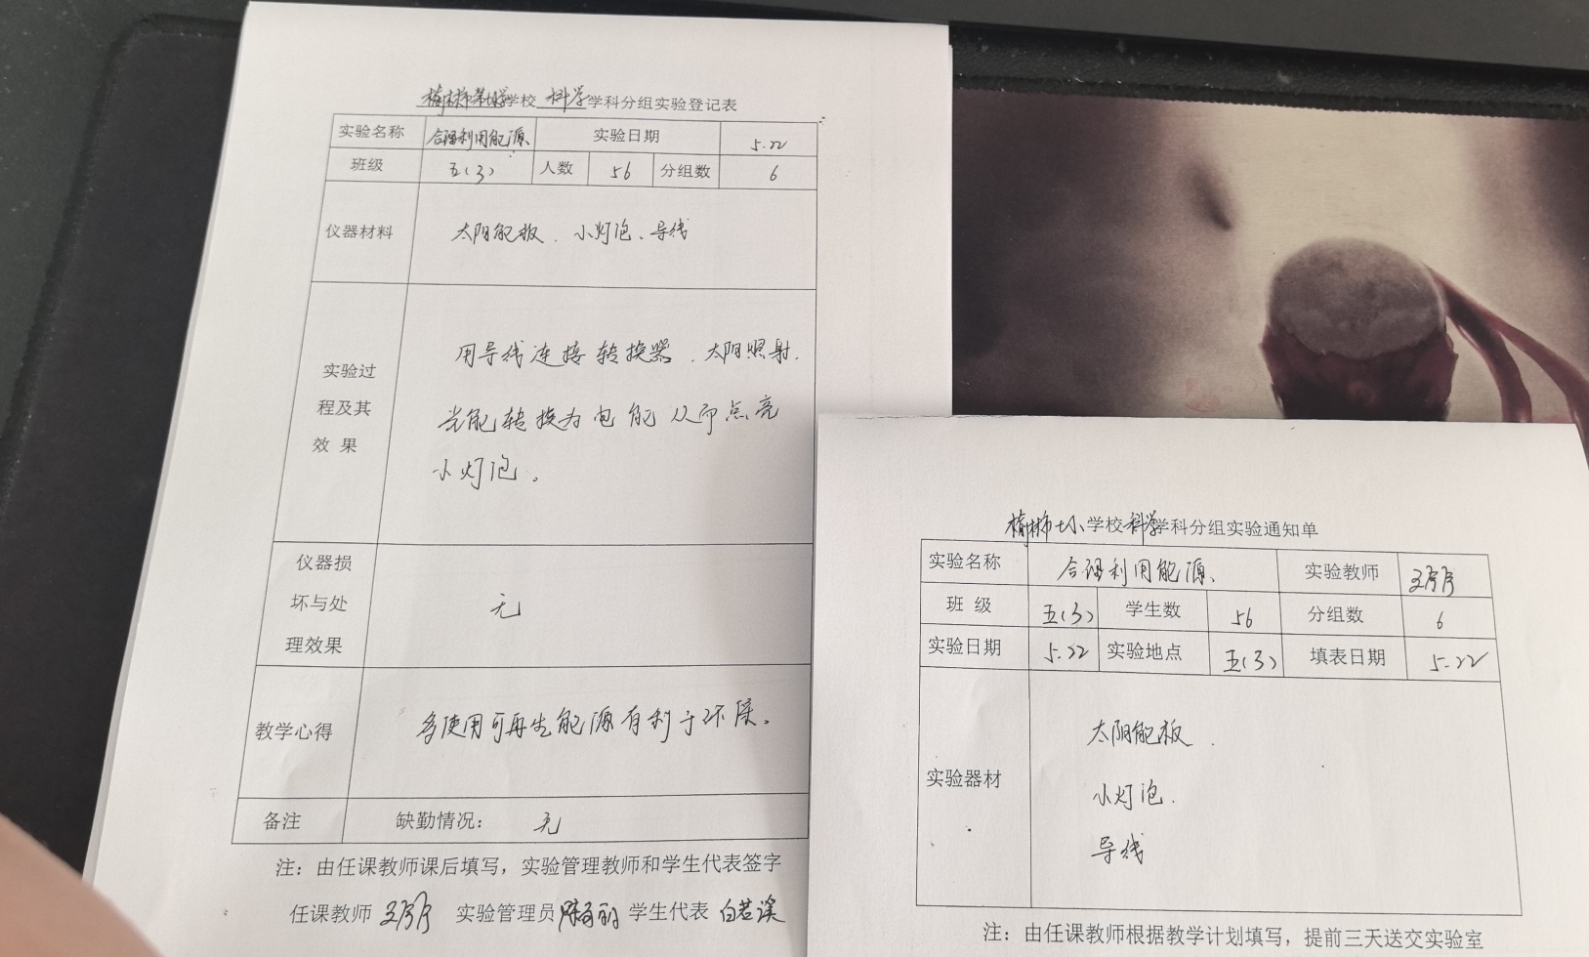 学校 科学 学科分组实验登记表
实验名称 合理利用能源 实验日期 5.22
班级 五(3) 人数 56 分组数 6
仪器材料 太阳能板、小灯泡、导线
实验过程及其效果
用导线连接转换器、太阳照射.
光能转换为电能从而点亮
小灯泡。
仪器损坏与处理效果 无
教学心得 多使用可再生能源有利于环保。
备注 缺勤情况: 无
注:由任课教师课后填写,实验管理教师和学生代表签字
任课教师 实验管理员 学生代表 白若溪
学校科学学科分组实验通知单
实验名称 合理利用能源、 实验教师
班 级 五(3) 学生数 56 分组数 6
实验日期 5.22 实验地点 五(3) 填表日期 5.22
实验器材
太阳能板.
小灯泡.
导线
注:由任课教师根据教学计划填写,提前三天送交实验室